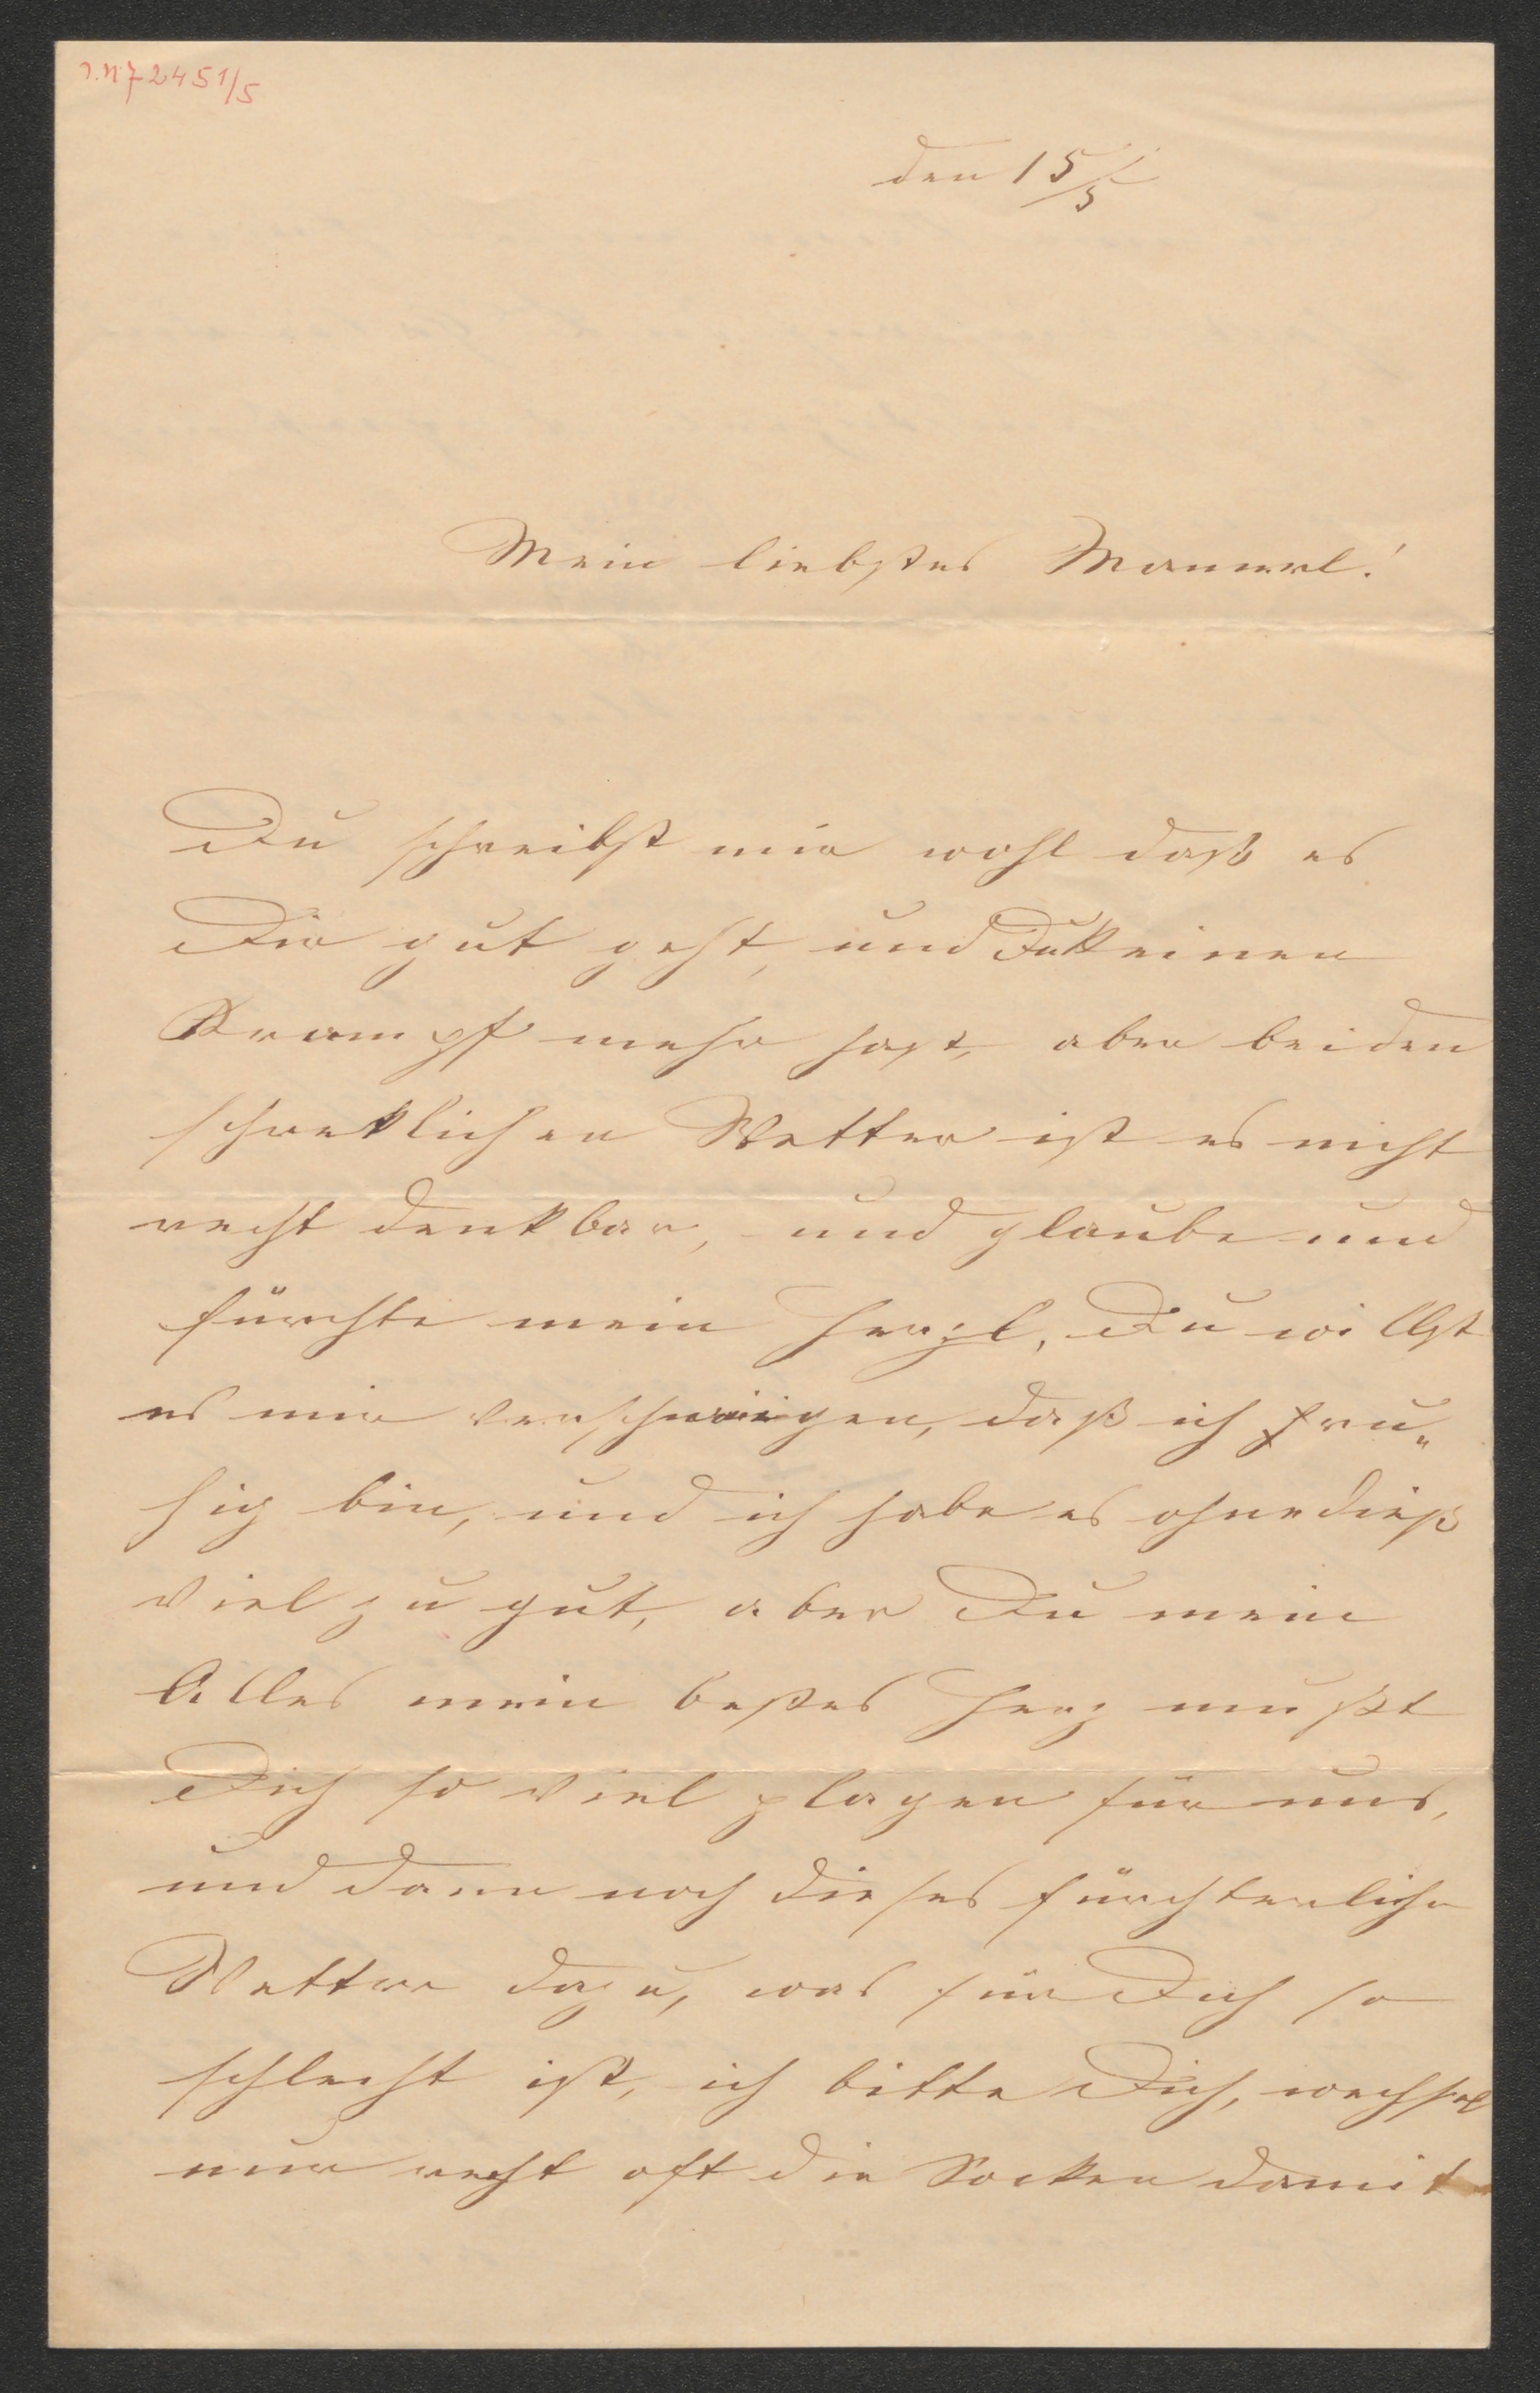 I.N. 72451/5
den 15/5
Mein liebstes Manerl!
Du schreibst mir wohl daß es
Dir gut geht, und Du keinen
Krampf mehr hast, aber bei den
schreklichen Wetter ist es nicht
recht denkbar, und glaube und
fürchte mein Herzl, Du willst
es mir verschweigen, daß ich
bin, und ich habe es ohnedieß
viel zu gut, aber Du mein
Alles mein bestes Herz mußt
Dich so viel plagen für uns,
und dann noch dieses fürchterliche
Wetter dazu, was für Dich so
schlecht ist, ich bitte Dich, wechsel
nur recht oft die Socken damit